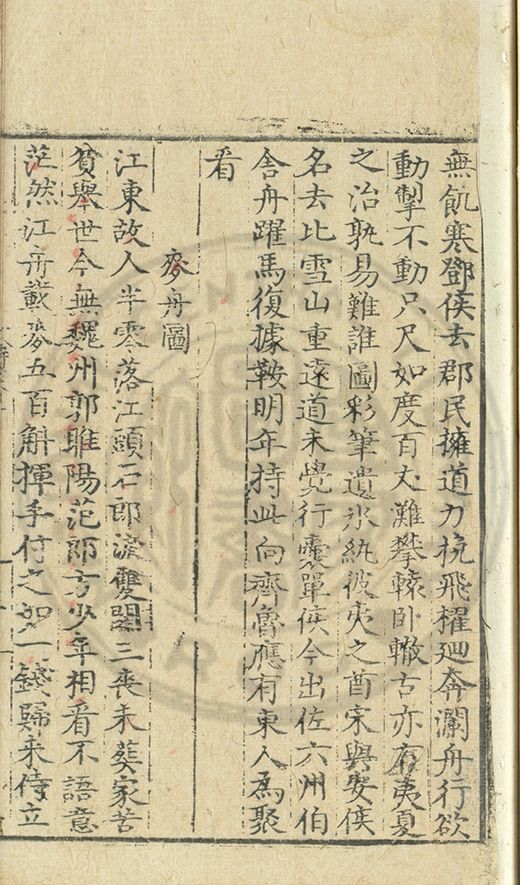 無飢寒鄧侯去郡民擁道力挽飛櫂廻奔瀾舟行欲
動掣不動只尺如度百丈灘攀轅卧轍古亦有夷夏
之治孰易難誰圖彩筆遺氷紈彼夷之酋宋與安侯
名去比雪山重遠道未覺行囊單侯今出佐六州伯
舍舟躍馬復據鞍明年持此向齊魯應有東人為聚
看
麥舟圖
江東故人半零落江頭石郎淚雙三喪未葬家苦
貧舉世今無魏州郭睢陽范郎方少年相看不語意
茫然江舟載麥五百斛揮手付之如一錢歸来侍立